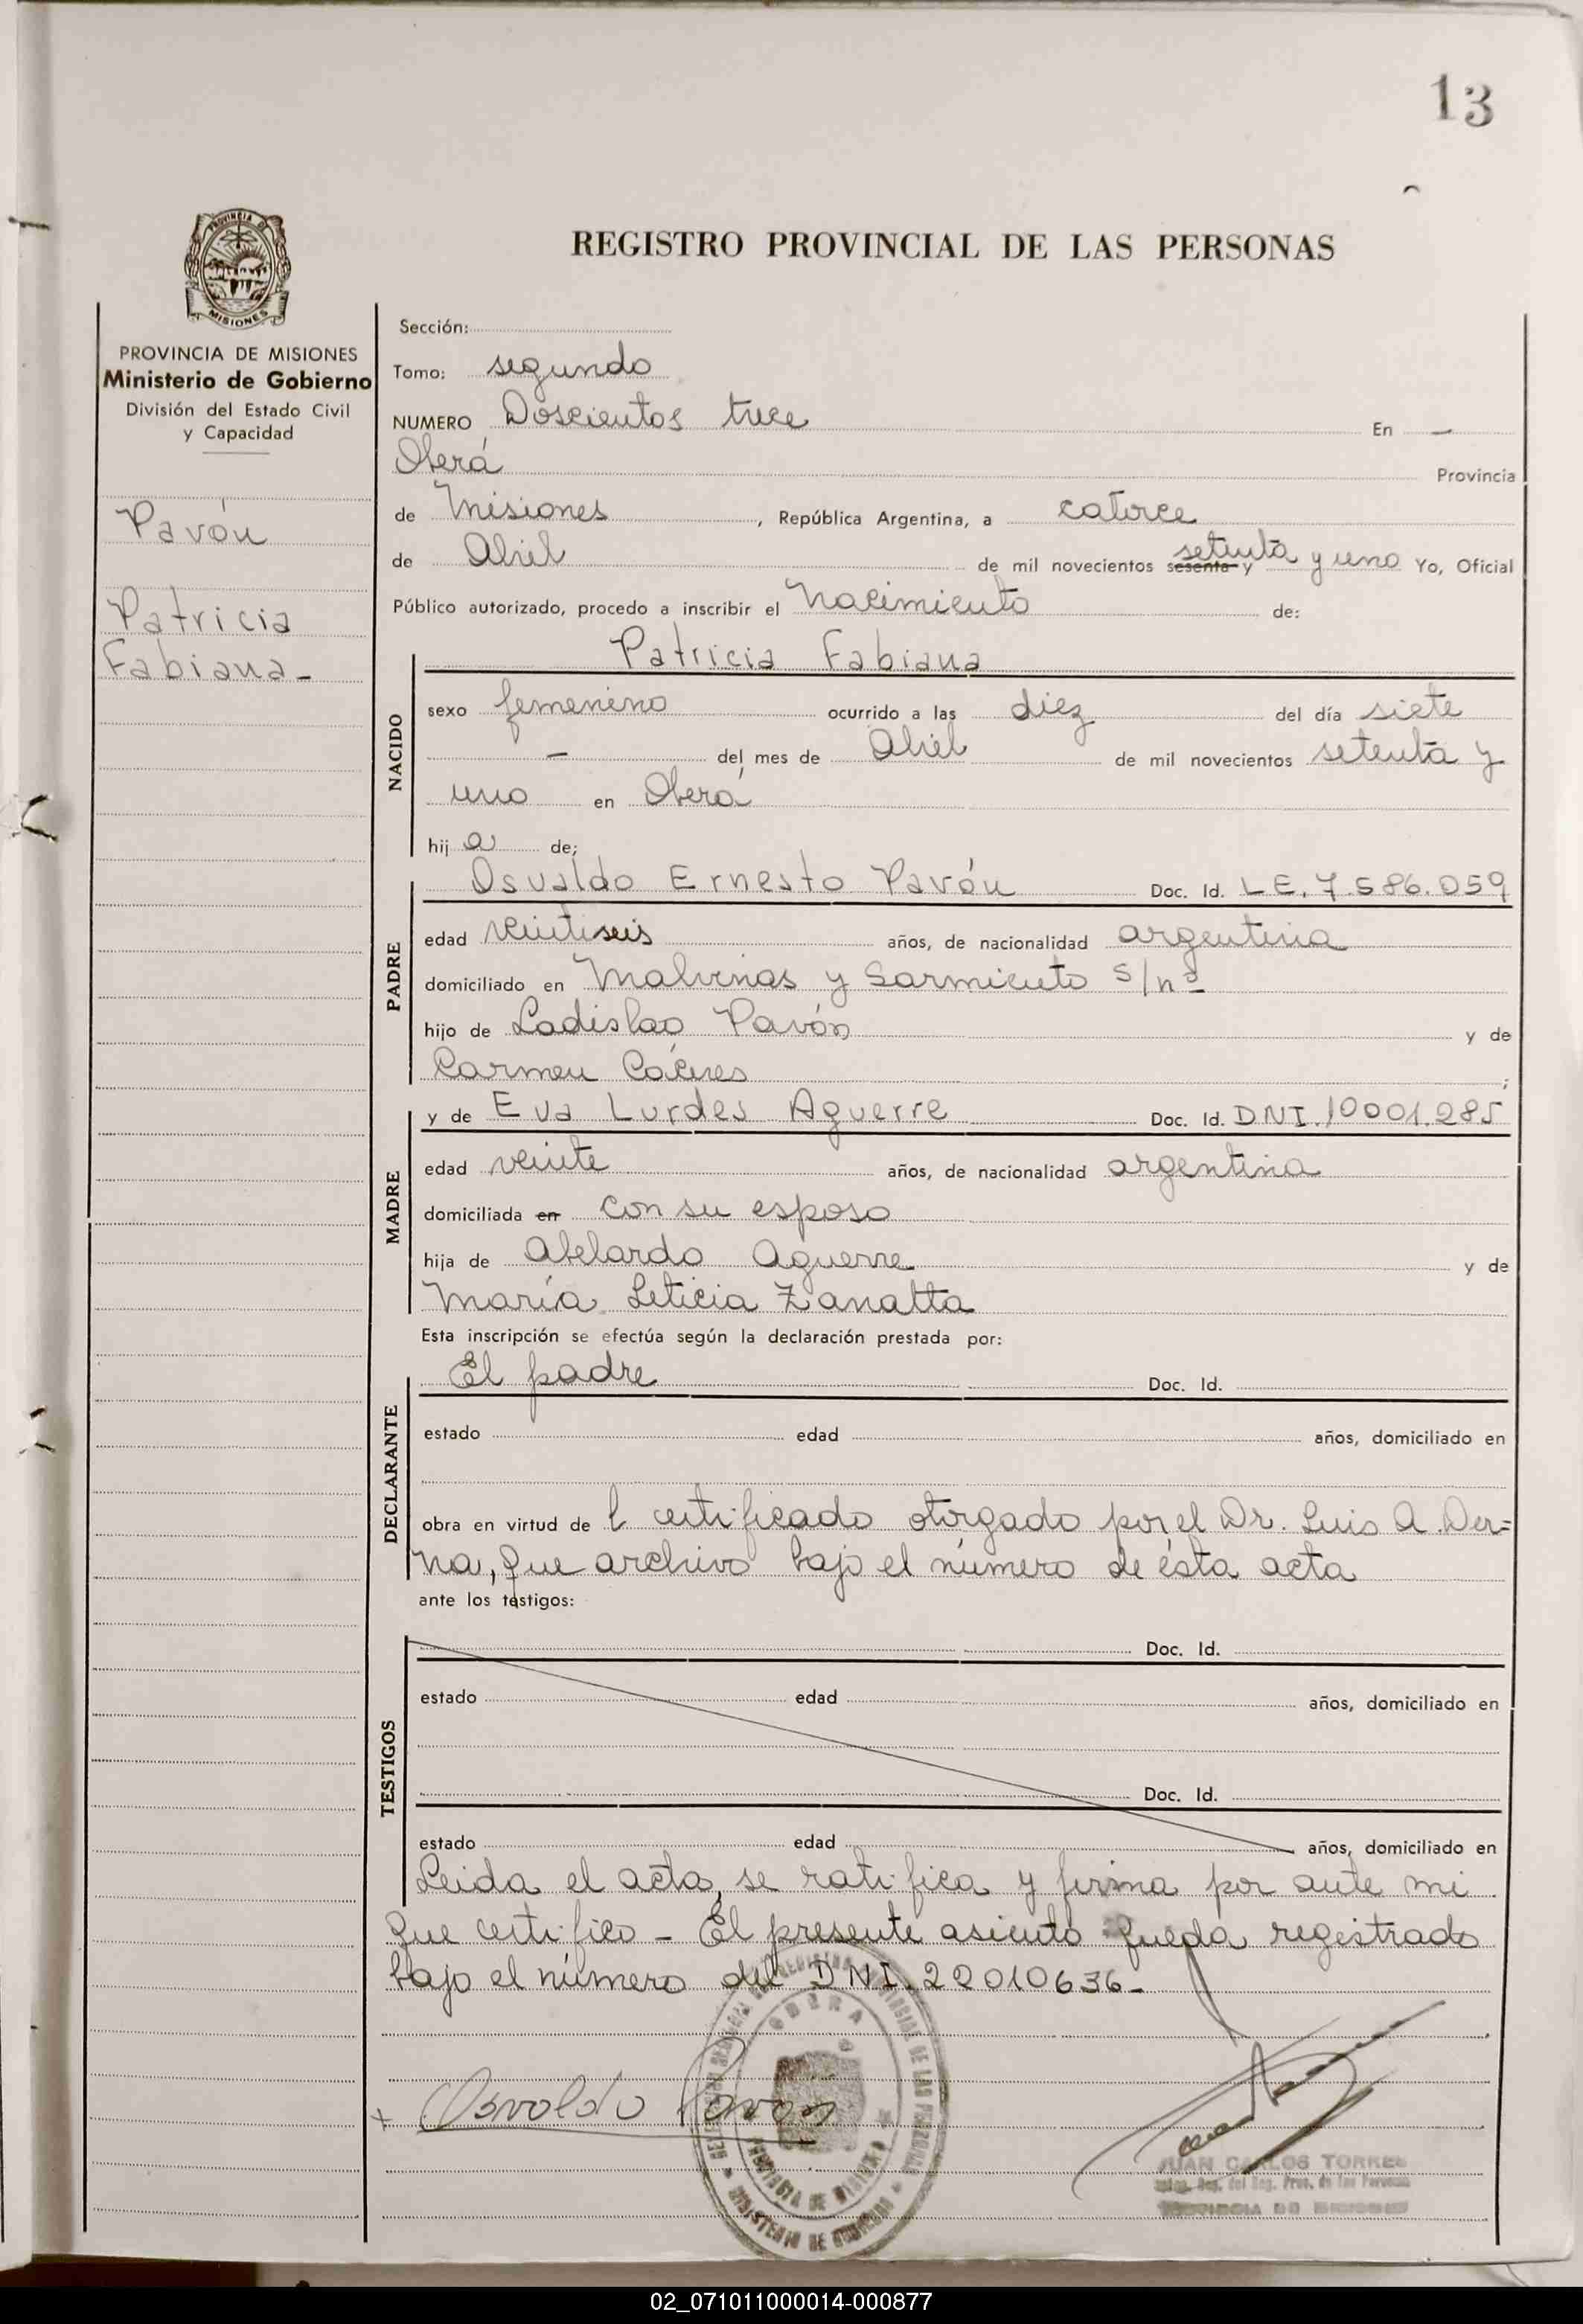 13
REGISTRO PROVINCIAL DE LAS PERSONAS
PROVINCIA DE MISIONES
Ministerio de Gobierno
División del Estado Civil
y Capacidad
Pavón
Patricia
Fabiana -
Sección:
Tomo: segundo
NUMERO Doscientos trece En —
Oberá Provincia
de Misiones , República Argentina, a catorce
de Abril de mil novecientos sesenta y setenta y uno Yo, Oficial
Público autorizado, procedo a inscribir el Nacimiento de:
Patricia Fabiana
NACIDO
sexo femenino ocurrido a las diez del día siete
— del mes de Abril de mil novecientos setenta y
uno en Oberá
hija de;
Osvaldo Ernesto Pavón Doc. Id. LE. 7.586.059
PADRE
edad veintiseis años, de nacionalidad argentina
domiciliado en Malvinas y Sarmiento s/nº
hijo de Ladislao Pavón y de
Carmen Cáceres ;
y de Eva Lurdes Aguerre Doc. Id. DNI. 10001.285
MADRE
edad veinte años, de nacionalidad argentina
domiciliada en con su esposo
hija de Abelardo Aguerre y de
María Leticia Zanatta
Esta inscripción se efectúa según la declaración prestada por:
El padre Doc. Id.
DECLARANTE
estado edad años, domiciliado en
obra en virtud de l certificado otorgado por el Dr. Luis A. Der=
na, que archivo bajo el número de ésta acta
ante los testigos:
Doc. Id.
TESTIGOS
estado edad años, domiciliado en
Doc. Id.
estado edad años, domiciliado en
Leida el acta, se ratifica y firma por ante mi
que certifico - El presente asiento queda registrado
bajo el número del DNI. 22010636-
OBERA
PROVINCIA DE MISIONES
MINISTERIO DE GOBIERNO
x Osvaldo Pavón
JUAN CARLOS TORRES
PROVINCIA DE MISIONES
02_071011000014-000877